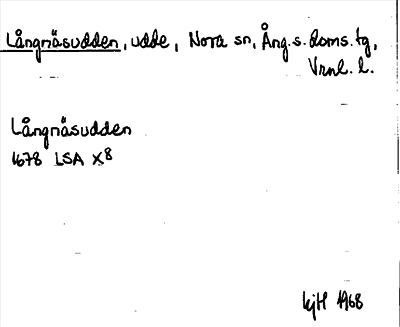 Långnäsudden, udde, Nora sn, Ång.s.doms.tg,
Vrnl. l.
Långnäsudden
1678 LSA X8
kjH 1968